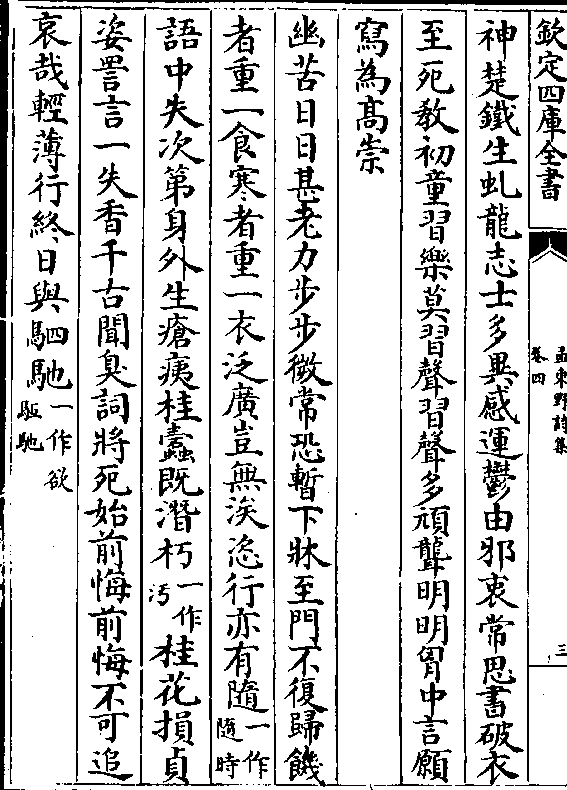 欽定四庫全書
孟東野詩集
卷四
三
神楚鐵生虬龍志士多異感運鬱由邪衷常思書破衣
至死教初童習樂莫習聲習聲多頑聾明明胷中言願
寫為髙崇
幽苦日日甚老力步步微常恐暫下牀至門不復歸饑
者重一食寒者重一衣泛廣豈無涘恣行亦有隨一作隨時
語中失次第身外生瘡痍桂蠧既潛朽一作汚桂花損貞
姿詈言一失香千古聞臭詞將死始前悔前悔不可追
哀哉輕薄行終日與駟馳一作欲駈馳